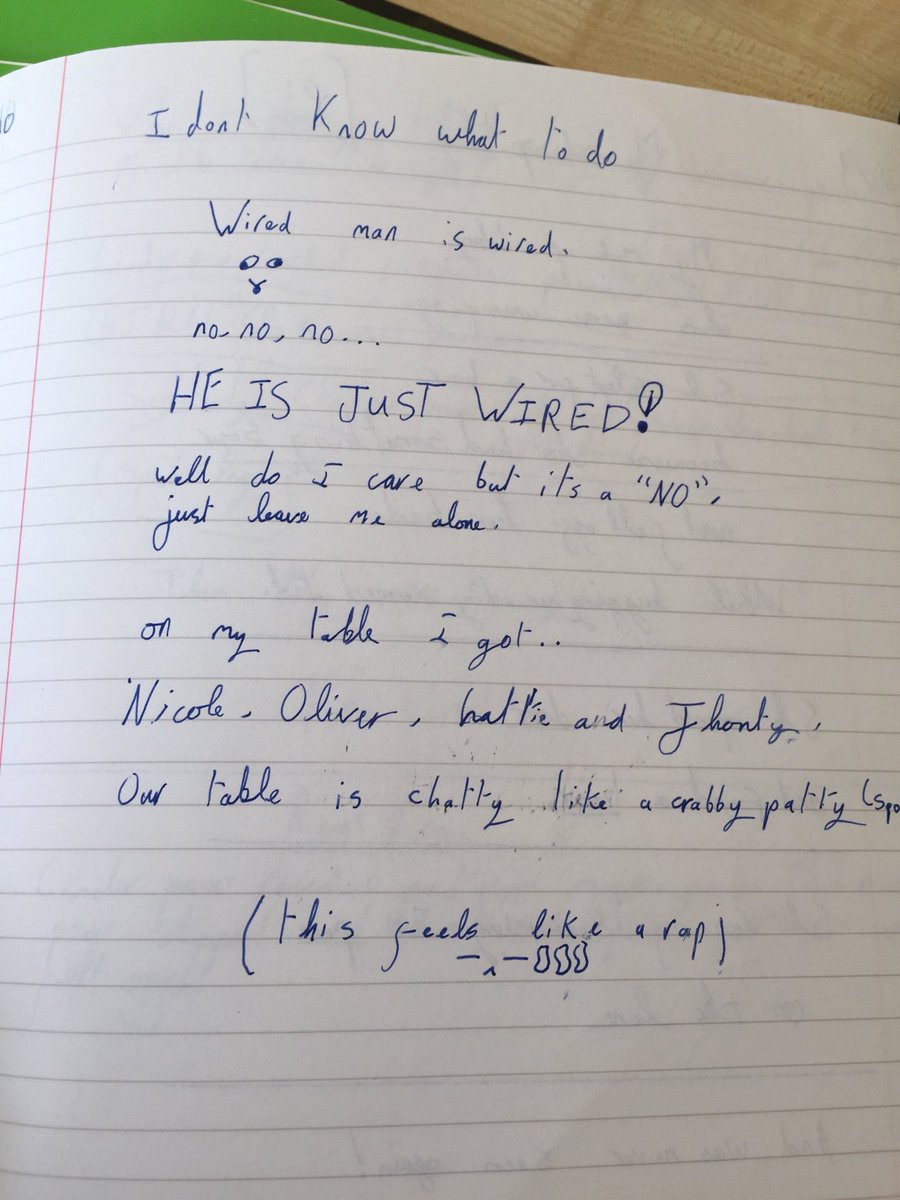 I dont Know what to do
Wired man is wired.
no, no, no...
HE IS JUST WIRED!
well do I care but its a "NO",
just leave me alone.
on my table I got..
Nicole, Oliver, hattie and Jhonty.
Our table is chatty like a crabby patty (spo
(this feels like a rap)